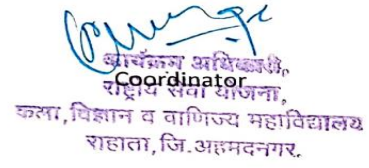 कार्यक्रम अधिकारी,
Coordinator
राष्ट्रीय सेवा योजना,
कला, विज्ञान व वाणिज्य महाविद्यालय
राहाता, जि. अहमदनगर.